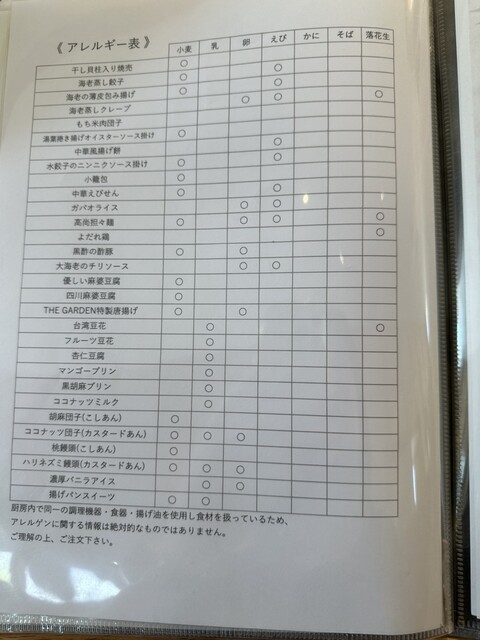 《 アレルギー表 》 小麦 乳 卵 えび かに そば 落花生
干し貝柱入り焼売 ○ ○
海老蒸し餃子 ○ ○
海老の薄皮包み揚げ ○ ○ ○ ○
海老蒸しクレープ
もち米肉団子
湯葉捲き揚げオイスターソース掛け ○
中華風揚げ餅 ○
水餃子のニンニクソース掛け ○ ○
小籠包 ○
中華えびせん ○ ○
ガパオライス ○ ○
高尚担々麺 ○ ○ ○ ○
よだれ鶏 ○
黒酢の酢豚 ○ ○
大海老のチリソース ○ ○
優しい麻婆豆腐 ○
四川麻婆豆腐 ○
THE GARDEN特製唐揚げ ○ ○
台湾豆花 ○ ○
フルーツ豆花 ○
杏仁豆腐 ○
マンゴープリン ○
黒胡麻プリン ○
ココナッツミルク ○
胡麻団子(こしあん) ○
ココナッツ団子(カスタードあん) ○ ○ ○
桃饅頭(こしあん) ○
ハリネズミ饅頭(カスタードあん) ○ ○ ○
濃厚バニラアイス ○ ○
揚げパンスイーツ ○ ○
厨房内で同一の調理機器・食器・揚げ油を使用し食材を扱っているため、
アレルゲンに関する情報は絶対的なものではありません。
ご理解の上、ご注文下さい。